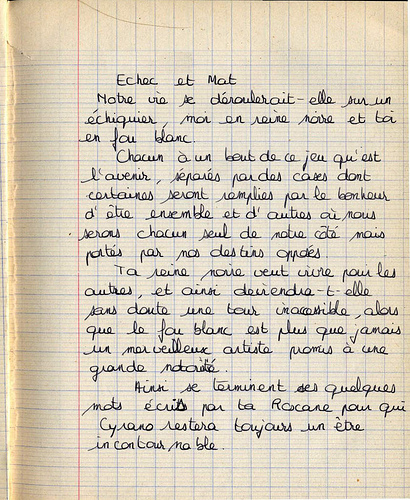 Echec et Mat
Notre vie se déroulerait-elle sur un
échiquier, moi en reine noire et toi
en fou blanc.
Chacun à un bout de ce jeu qu'est
l'avenir, séparés par des cases dont
certaines seront remplies par le bonheur
d'être ensemble et d'autres où nous
serons chacun seul de notre côté mais
portés par nos destins opposés.
Ta reine noire veut vivre pour les
autres, et ainsi deviendra-t-elle
sans doute une tour inaccessible, alors
que le fou blanc est plus que jamais
un merveilleux artiste promis à une
grande notoriété.
Ainsi se terminent ses quelques
mots écrits par ta Roxane pour qui
Cyrano restera toujours un être
incontournable.